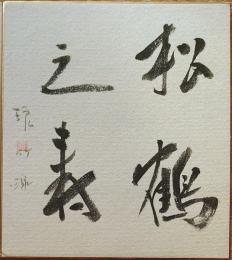 松鶴
之寿